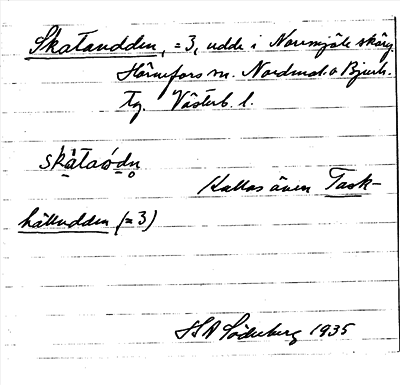 Skatandden, = 3, udde i Norrmjöle skärg.
Hörnefors sn. Nordmal. o Bjurh.
tg. Västerb. l.
skàtaódn
Kallas även Task-
hälludden (= 3)
H A Söderberg 1935